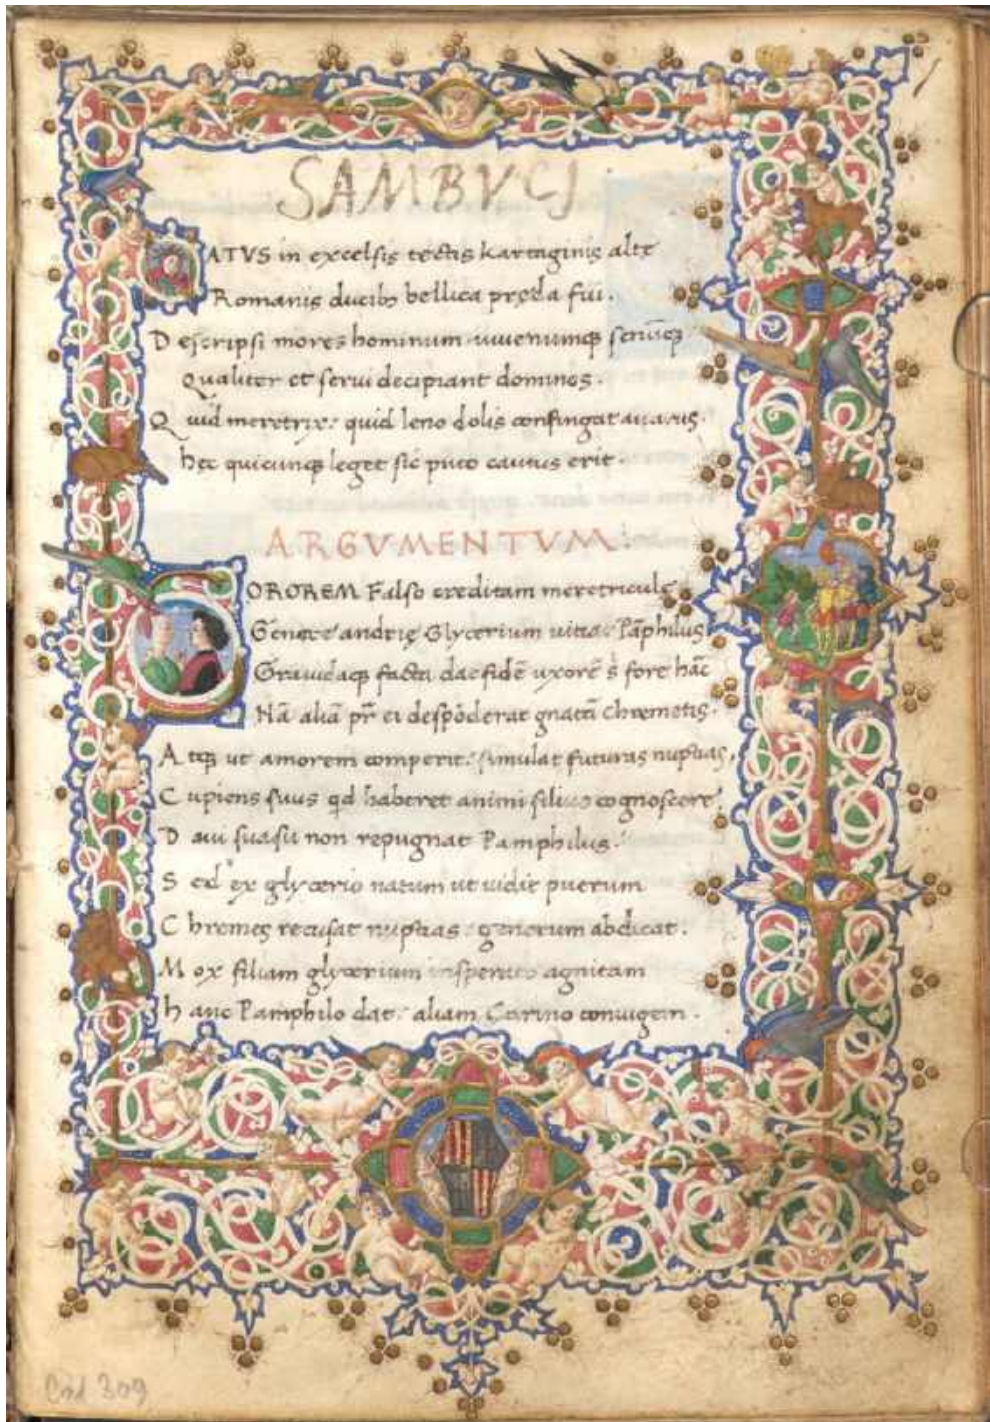 SAMBVCJ
NATVS in excelsis tectis kartaginis alte
Romanis ducib bellica pręda fui.
Descripsi mores hominum iuuenumq senūq
Qualiter et serui decipiant dominos.
Quid meretrix: quid leno dolis confingat auarus.
hęc quicunq leget sic puto cautus erit.
ARGVMENTVM.
SOROREM Falso creditam meretriculę
Genere andrię Glycerium uitiat Pāphilus
Grauidaq facta dat fidē uxorē s fore hāc
Nā aliā pr̄ ei despōderat gnatā chremetis.
Atq ut amorem comperit: simulat futuras nuptias,
Cupiens suus qd haberet animi filius cognoscere
Daui suasu non repugnat Pamphilus.
Sed ex glycerio natum ut uidit puerum
Chremes recusat nuptias: generum abdicat.
Mox filiam glycerium insperato agnitam
hanc Pamphilo dat: aliam Carino coniugem.
Cod 309